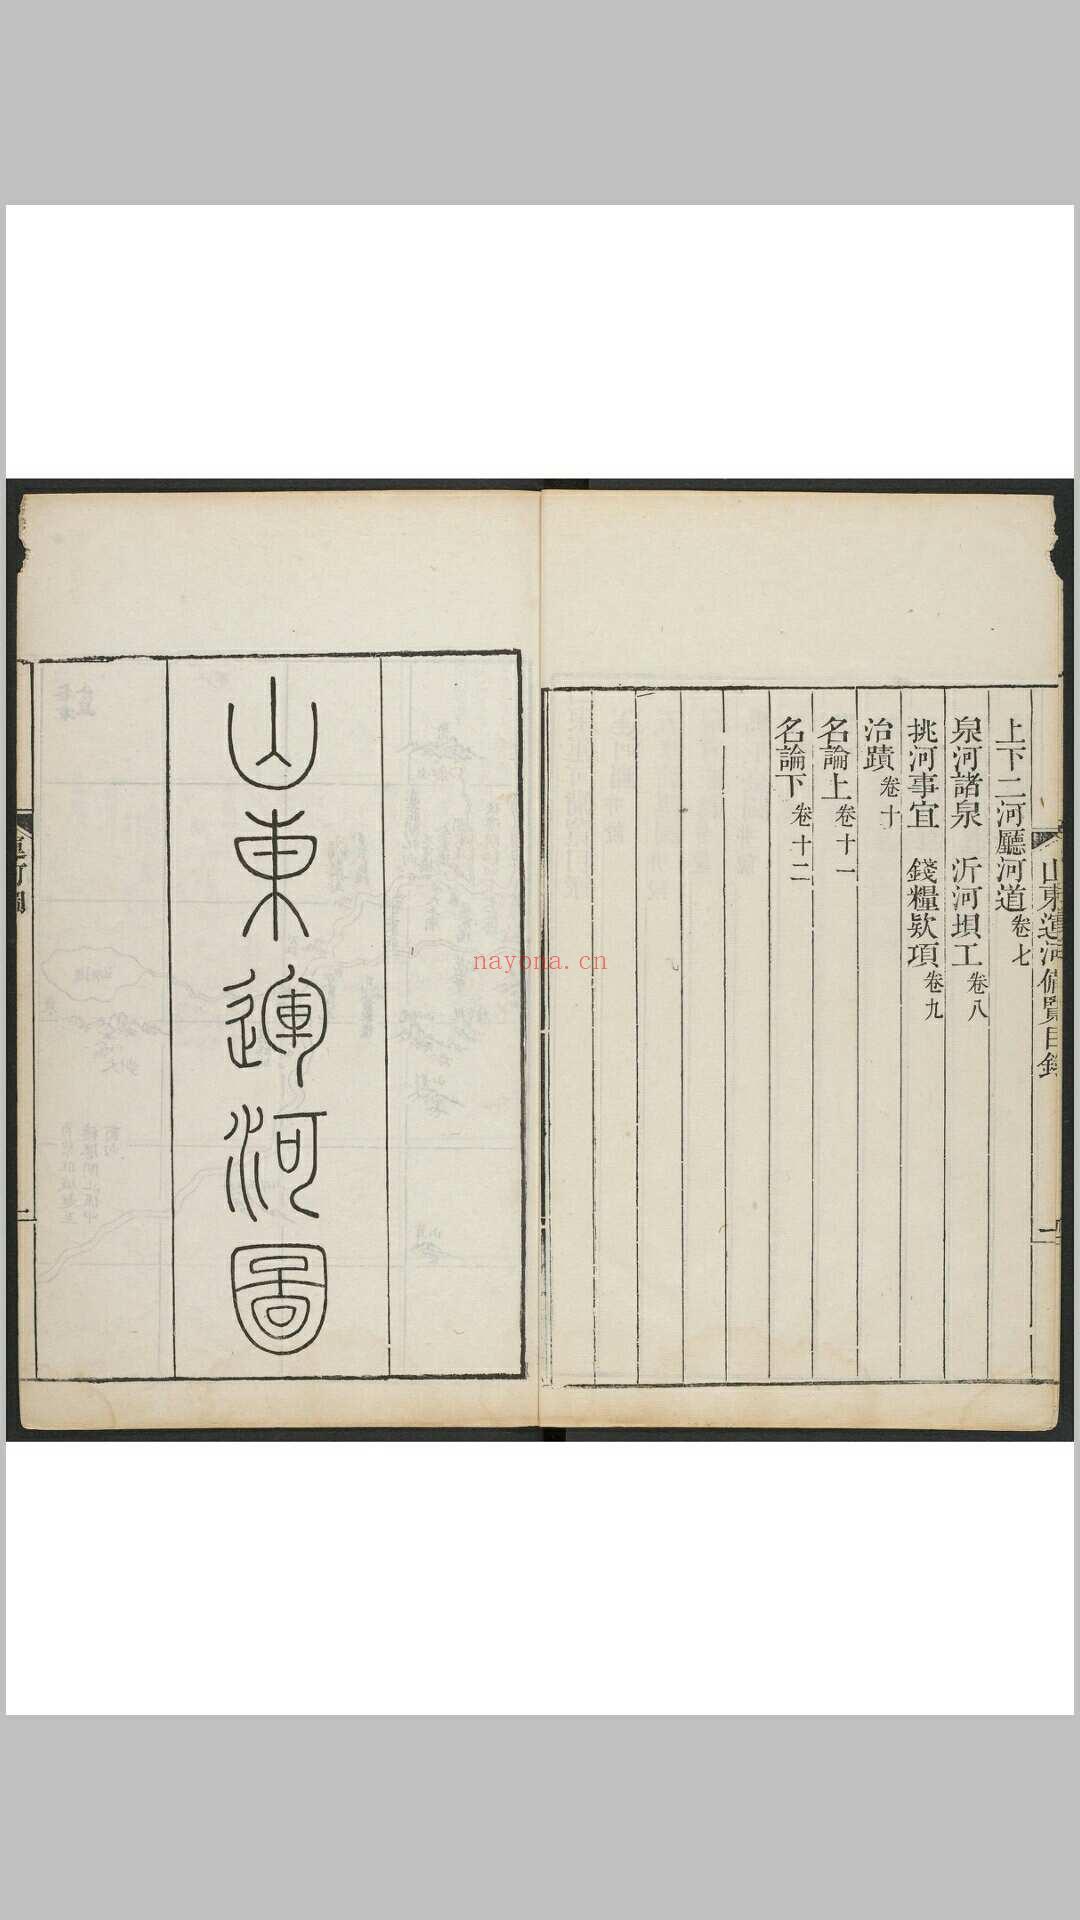 山東運河備覽目錄
一
上下二河廳河道 卷七
泉河諸泉 沂河垻工 卷八
挑河事宜 錢糧欵項 卷九
治蹟 卷十
名論上 卷十一
名論下 卷十二
山東運河圖
運河圖
一
nayona.cn